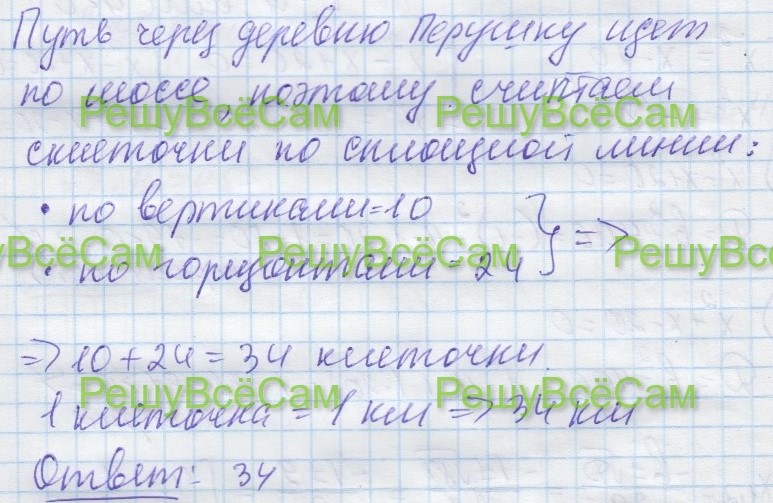 Путь через деревню Перушку идет
по шоссе, поэтому считаем
РешуВсёСам РешуВсёСам
клеточки по сплошной линии:
• по вертикали=10
} =>
РешуВсёСам РешуВсёСам РешуВсёСам
• по горизонтали = 24
=> 10 + 24 = 34 клеточки.
РешуВсёСам РешуВсёСам
1 клеточка = 1 км => 34 км
Ответ: 34